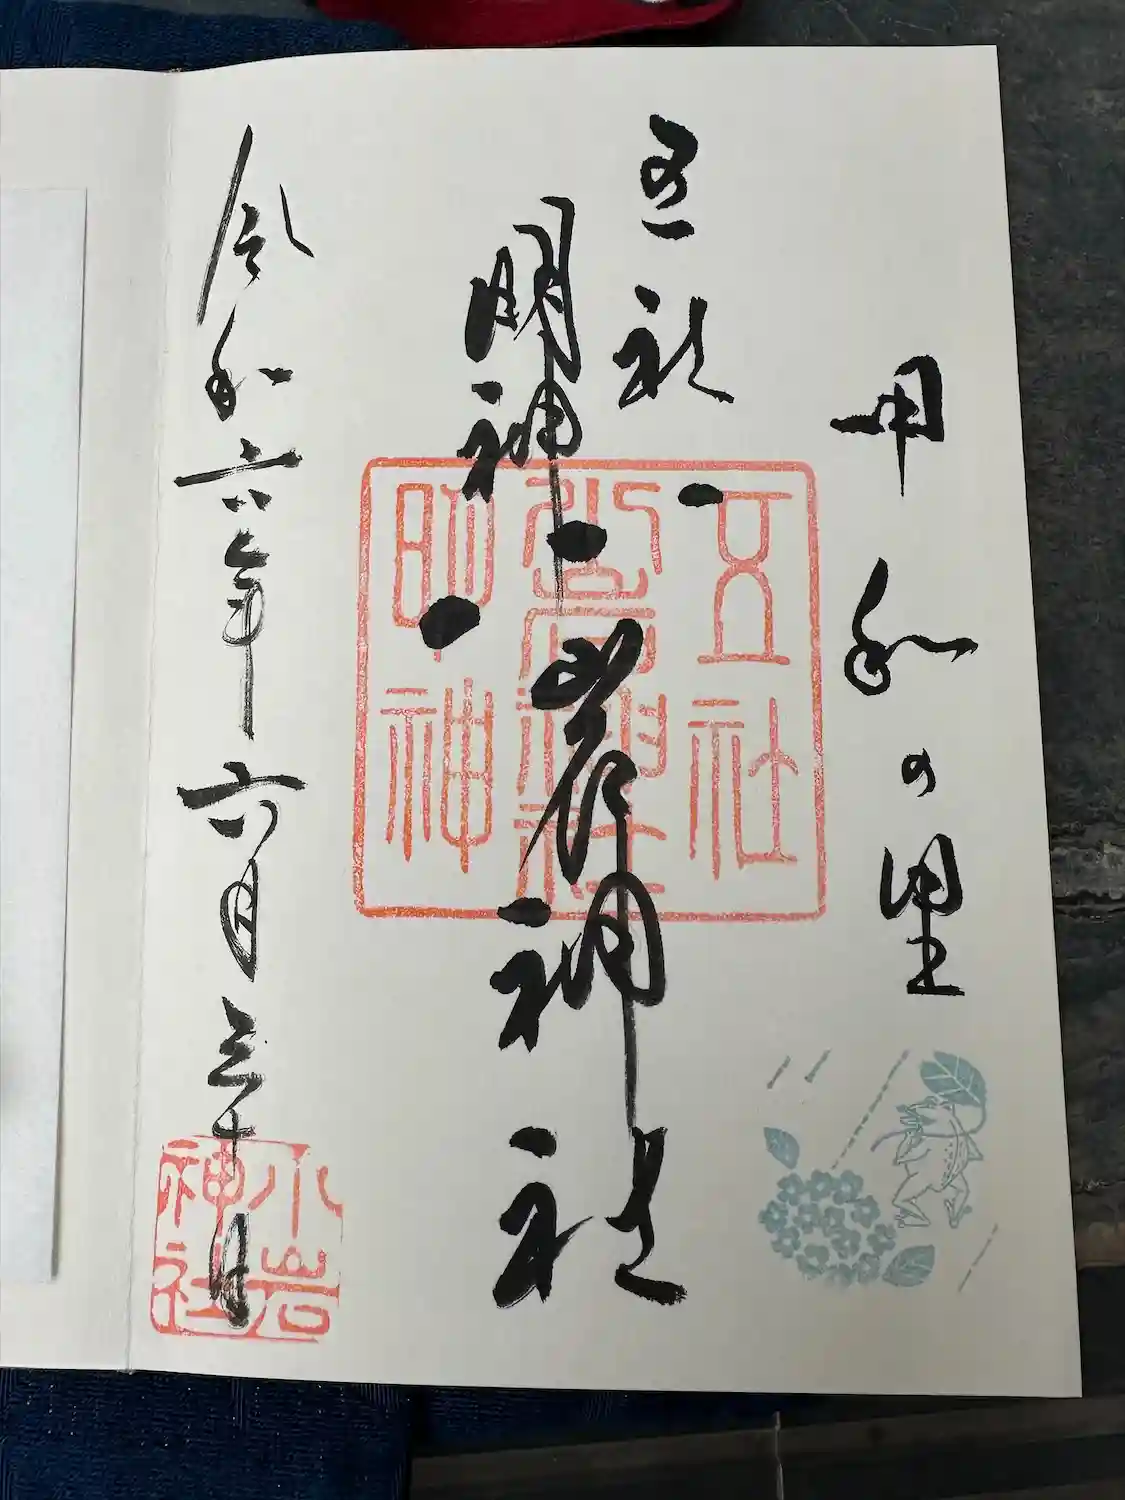 甲和の里
五社
明神
小岩神社
五社
小岩神社
明神
令和六年六月三十日
小岩
神社